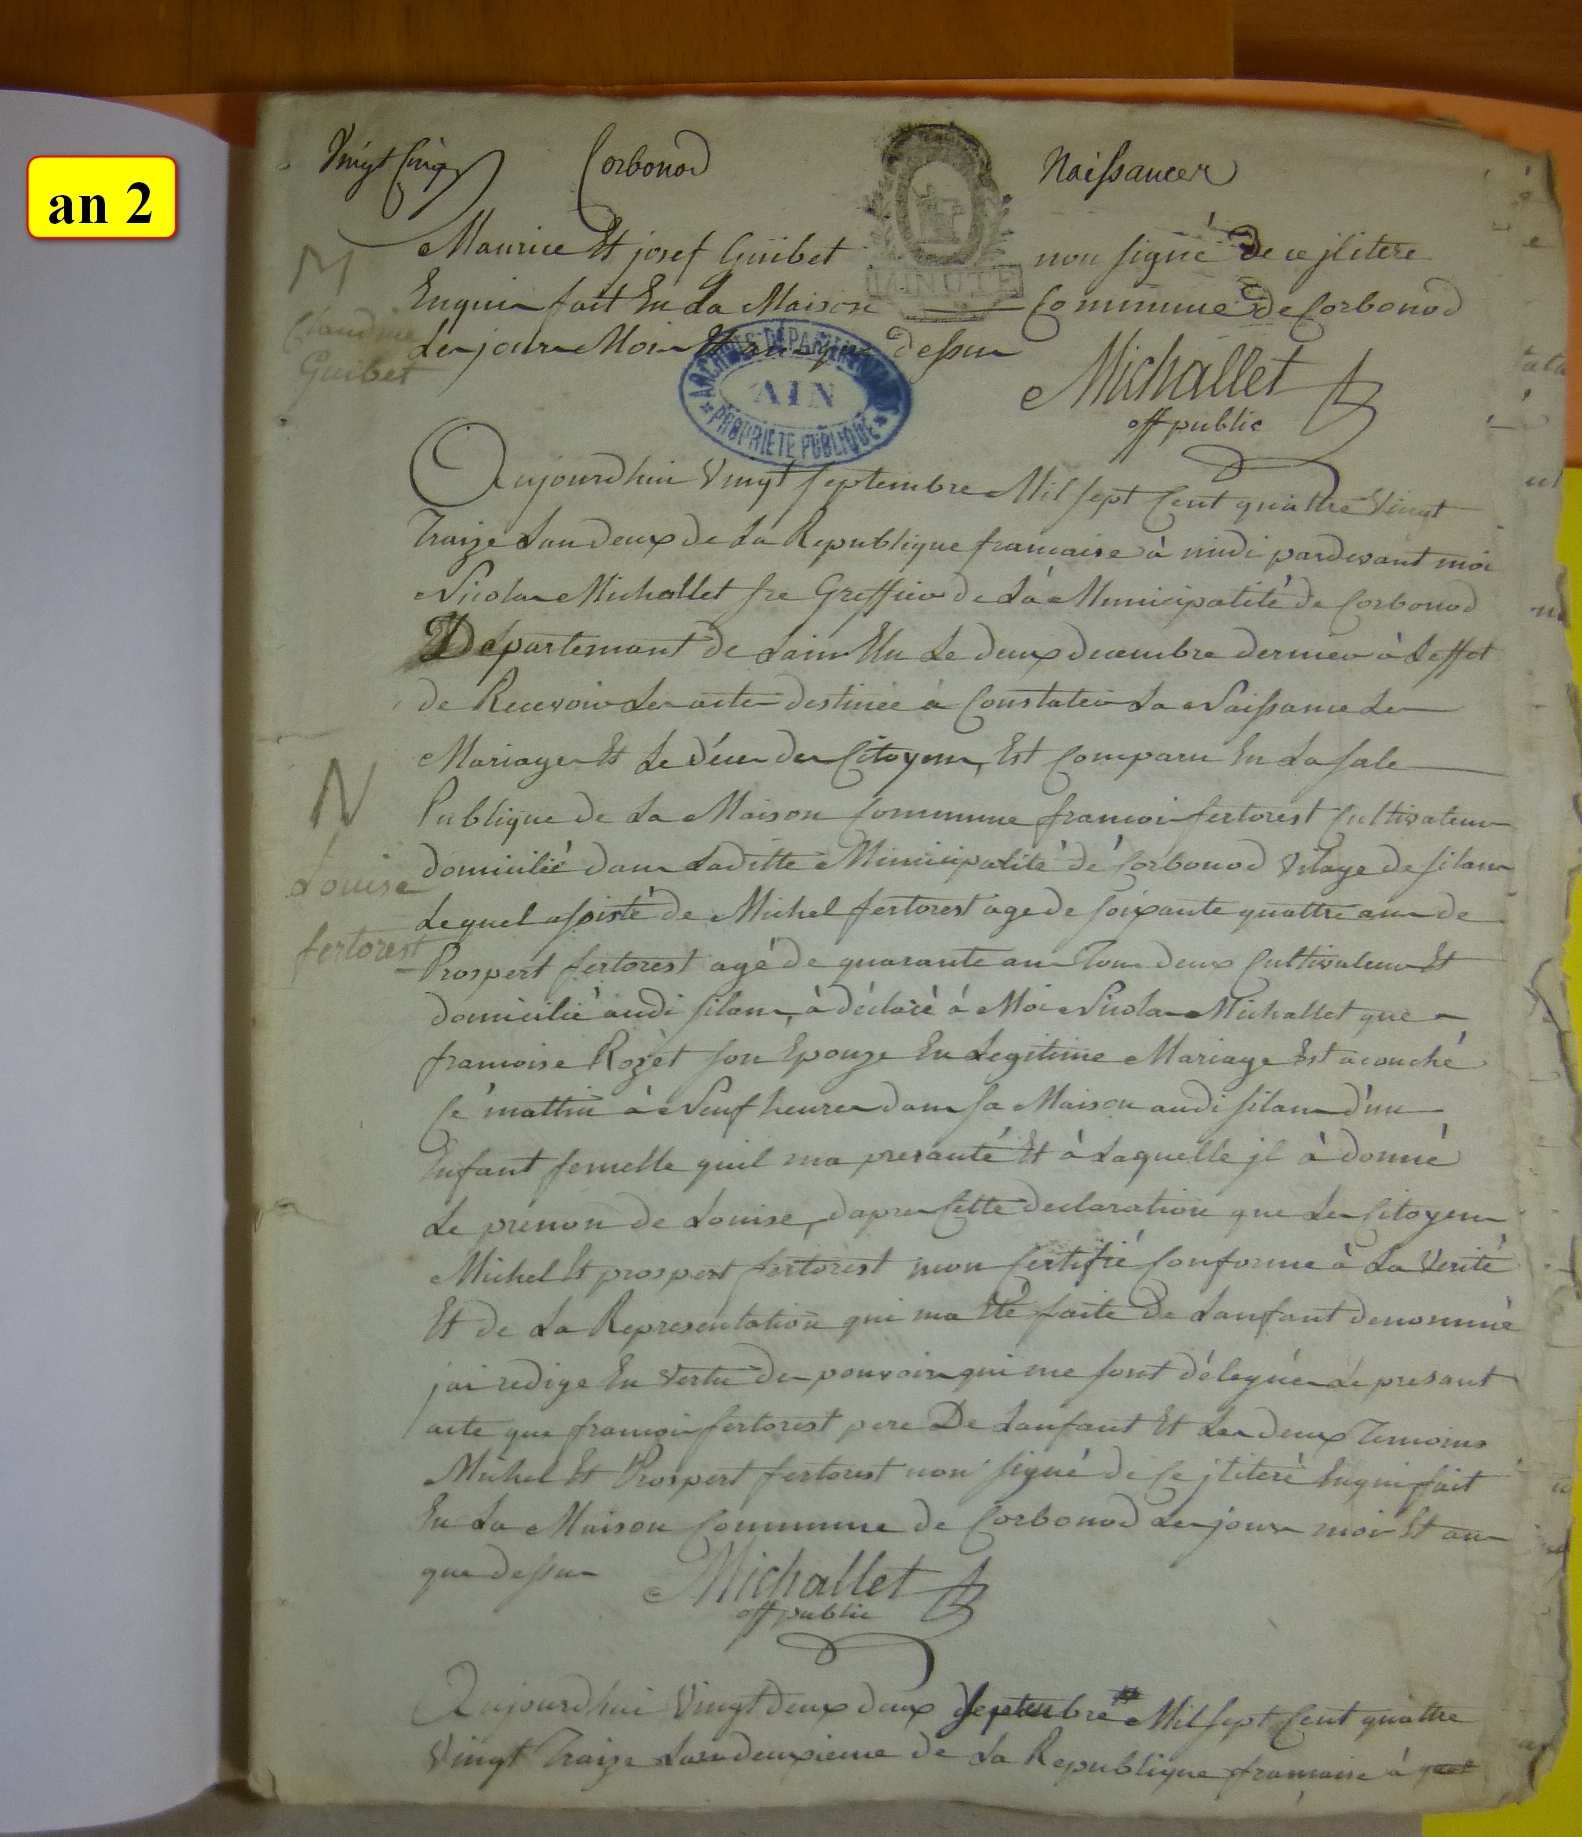 an 2
Vingt Cinq Corbonod Naissances
MINUTE
M
Claudine
Guibet
Maurice Et josef Guibet non signé De ce jlitere
Enquis fait En La Maison Commune de Corbonod
Les jour Mois Et an que dessus
ARCHIVES DEPARTEMENTALES
AIN
PROPRIETE PUBLIQUE
Michallet
off public
Aujourdhui Vingt septembre Mil sept Cent quattre Vingt
Traize Lan deux de La Republique francaise à midi pardevant moi
Nicolas Michallet fre Greffier de La Municipalité de Corbonod
Departemant de Lain Elu Le deux decembre dernier à Leffet
de Recevoir Les actes destinée à Constater La Naissance Les
Mariages Et Le Déces des Citoyens, Est Comparu En La sale
Publique de La Maison Commune francois fertorest Cultivateur
N
Louise
fertorest
domicilié dans Laditte Municipalité de Corbonod Vilage de silans
Lequel assisté de Michel fertorest age de soixante quattre ans de
Prospert fertorest agé de quarante ans Tous deux Cultivateurs Et
domicilié audi silans, à déclaré à Moi Nicolas Michallet que
francoise Rozet son Epouze En Legitime Mariage Est acouché
Ce mattin à Neuf heures dans sa Maison audi silans d'un
Enfant femelle quil ma presanté Et à Laquelle jl à donné
Le prénon de Louise, dapres Cette declaration que Les Citoyens
Michel Et prospert fertorest mon Certifié Conforme à La Verité
Et de La Representation qui ma Eté faite De Lanfant denommé
jai redige En Vertu des pouvoirs qui me sont délegués Le presant
acte que francois fertorest pere De Lanfant Et Les deux Temoins
Michel Et Prospert fertorest non signé de Ce jlitere Enquis fait
En La Maison Commune de Corbonod Les jour mois Et an
que dessus
Michallet
off public
Aujourdhui Vingt deux deux Septembre Mil sept Cent quattre
Vingt Traize Lan deuxieme de La Republique francaise à